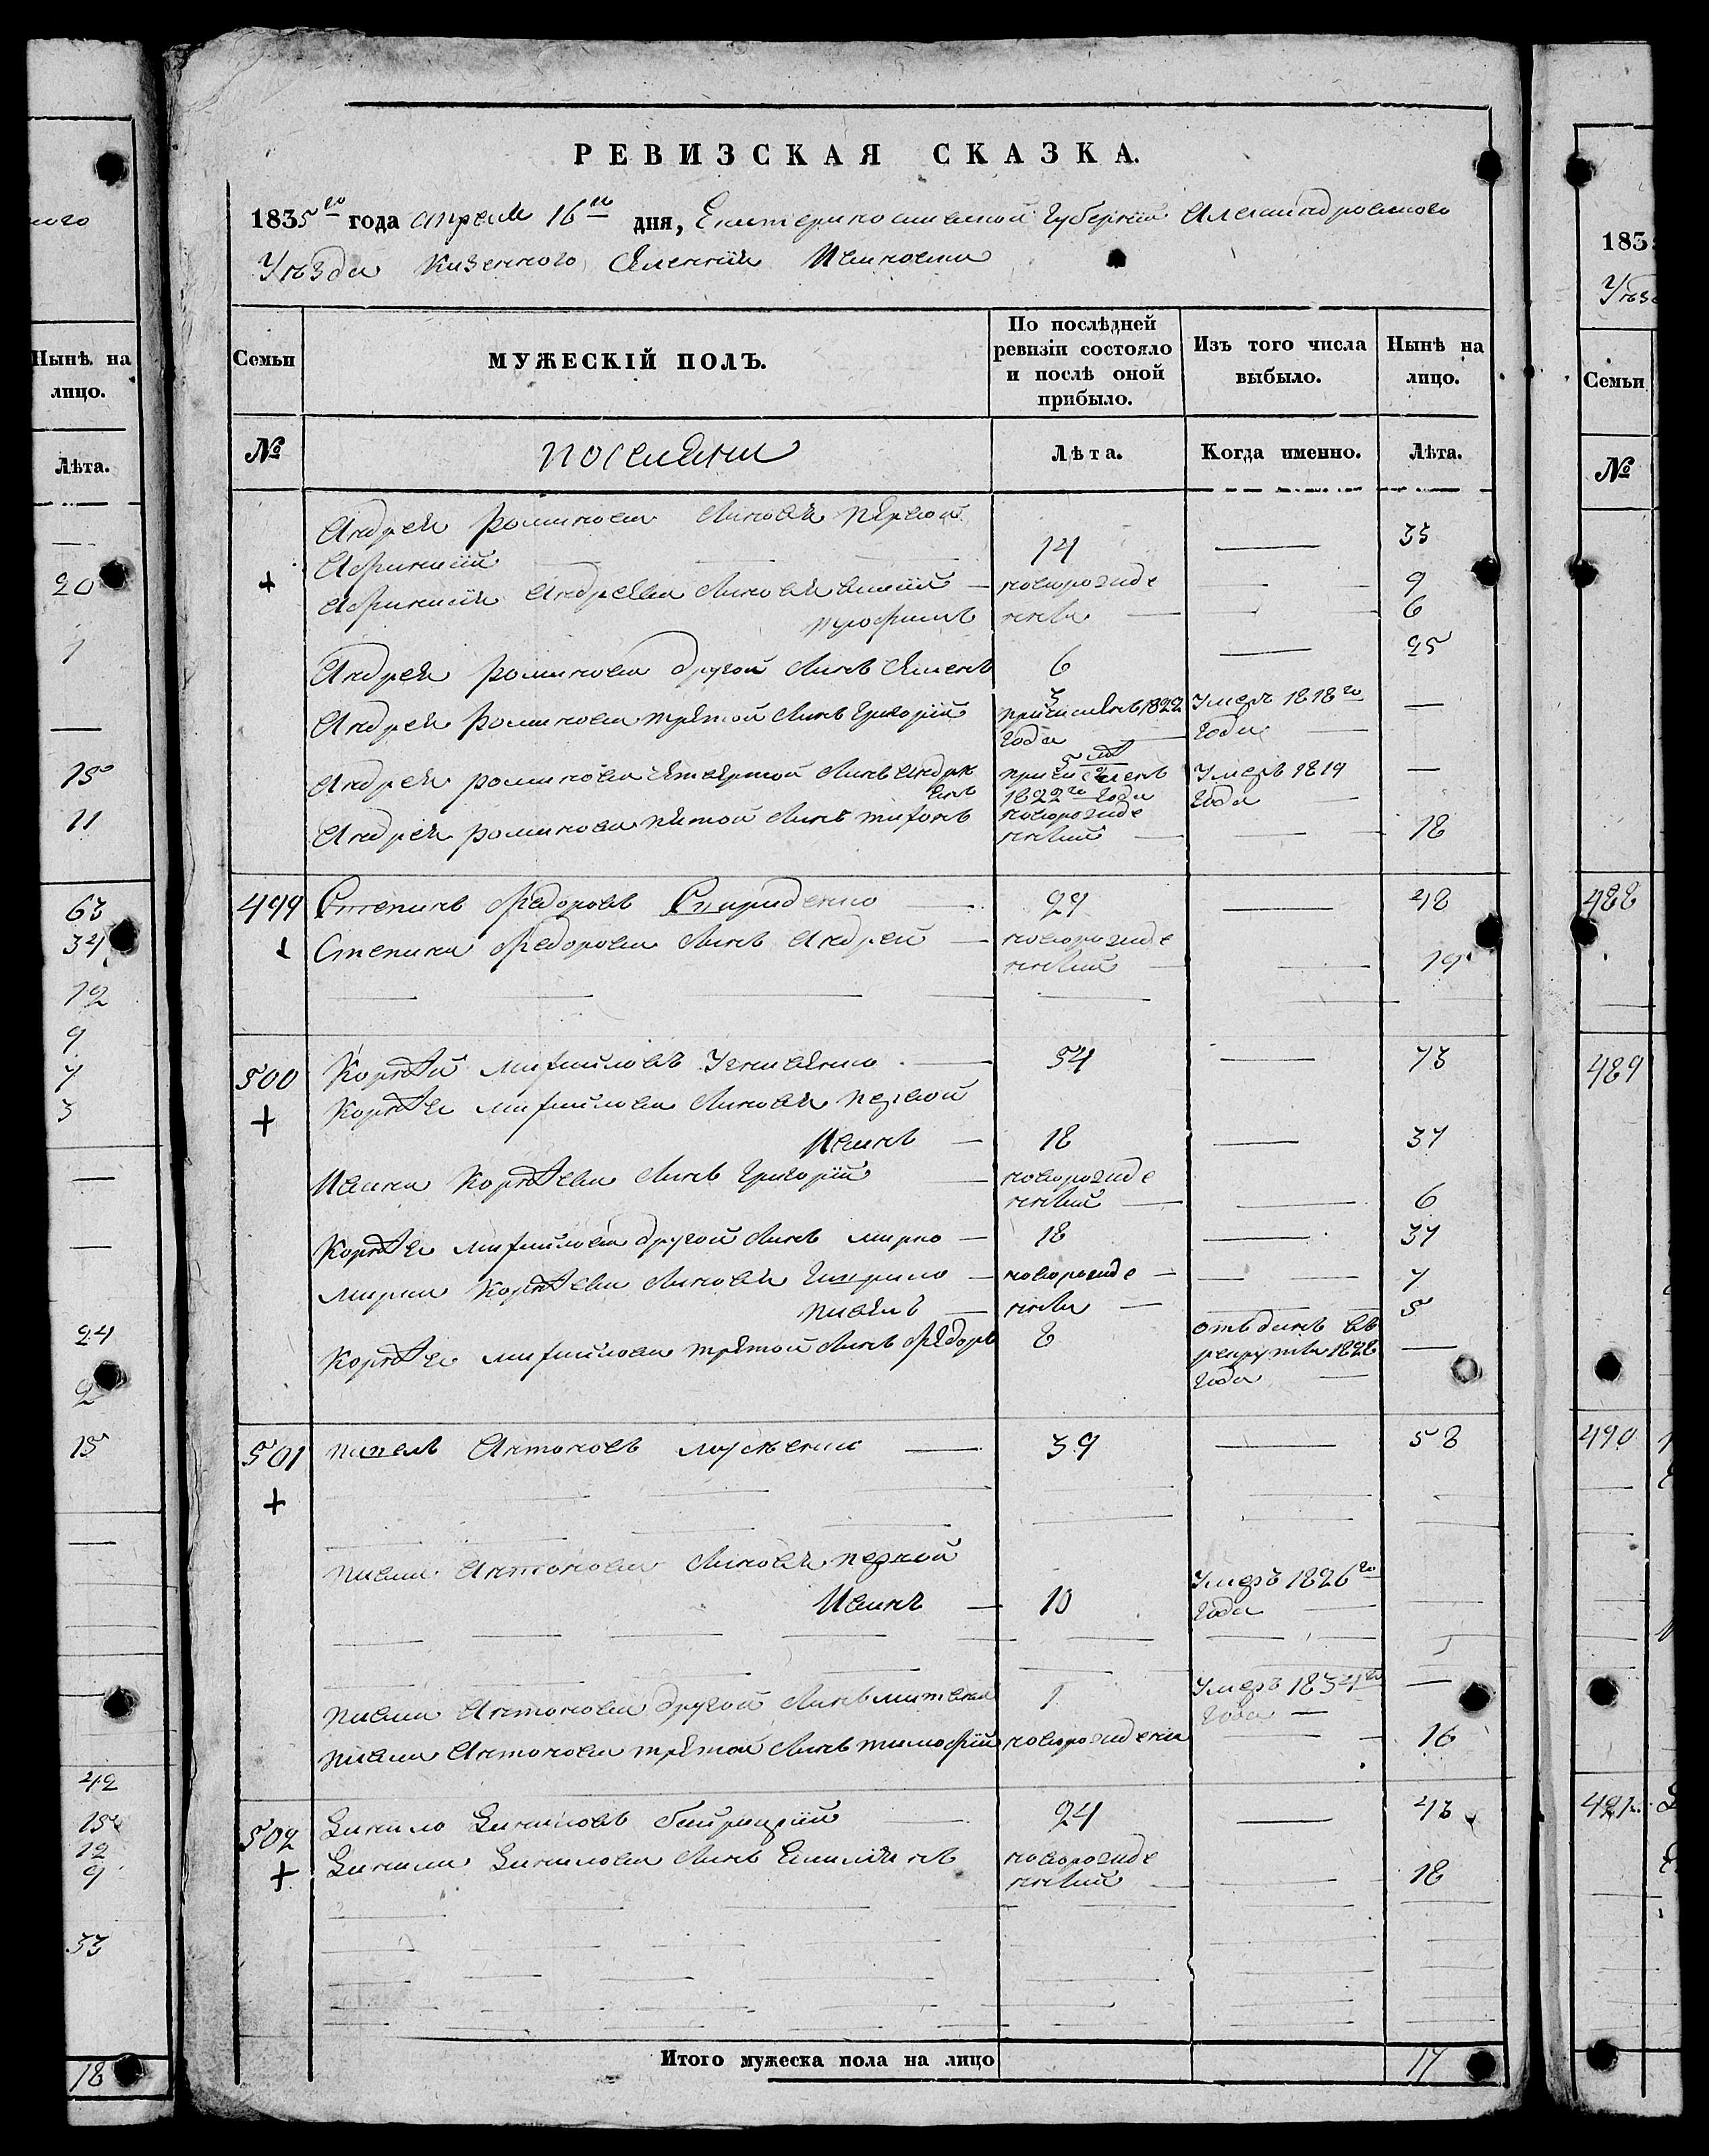 РЕВИЗСКАЯ СКАЗКА.
1835го года апреля 16го дня, Екатеринославской Губернии Александровского
Уѣзда Казенного Селения Ивановки
Семьи
МУЖЕСКІЙ ПОЛЪ.
По послѣдней ревизіи состояло и послѣ оной прибыло.
Изъ того числа выбыло.
Нынѣ на лицо.
№
поселяни
Лѣта.
Когда именно.
Лѣта.
Андрея романова Сыновья первой
Афанасий 14 — 33
+
Афанасия Андреева Сыновья новорожде — 9
трофимъ нные — 6
Андрея романова другой Сынъ Семенъ 6 — 25
Андрея романова третой Сынъ Григорий 3 причисленъ 1822 года Умеръ 1818го года —
Андрея романова четвертой Сынъ Андрияенъ 5 лѣт причисленъ 1822го года Умеръ 1819 года —
Андрея романова пятой Сынъ тихонъ новорожденный — 18
499 Степанъ Федоровъ Спириденко 29 — 48
Степана Федорова Сынъ Андрей — новорожденный — 19
500 Корнѣй михайловъ 54 — 73
+
Корнѣя михайлова Сыновья первой
Иванъ — 18 — 37
Ивана Корнѣева Сынъ Григорий новорожденный — 6
Корнѣя михайлова другой Сынъ марко — 18 — 37
марка Корнѣева Сыновья Гаврило — новорожде — 7
павелъ — нные — 5
Корнѣя михайлова третой Сынъ Федоръ 8 отъданъ въ рекруты 1828 года —
501 павелъ Антоновъ 39 — 58
+
павла Антонова Сыновья первой
Иванъ — 10 Умеръ 1826го года
павла Антонова другой Сынъ 1 Умеръ 1834го года —
павла Антонова третой Сынъ тимофий новорожденн — 16
502 Данило Даниловъ 24 — 43
+ Данила Данилова Сынъ Емилиянъ новорожденный — 18
Итого мужеска пола на лицо 17
Нынѣ на лицо.
Лѣта.
20
7
15
11
63
34
12
9
7
3
24
2
15
42
15
12
9
33
18
183
Уѣз
Семьи
№
488
489
490
491